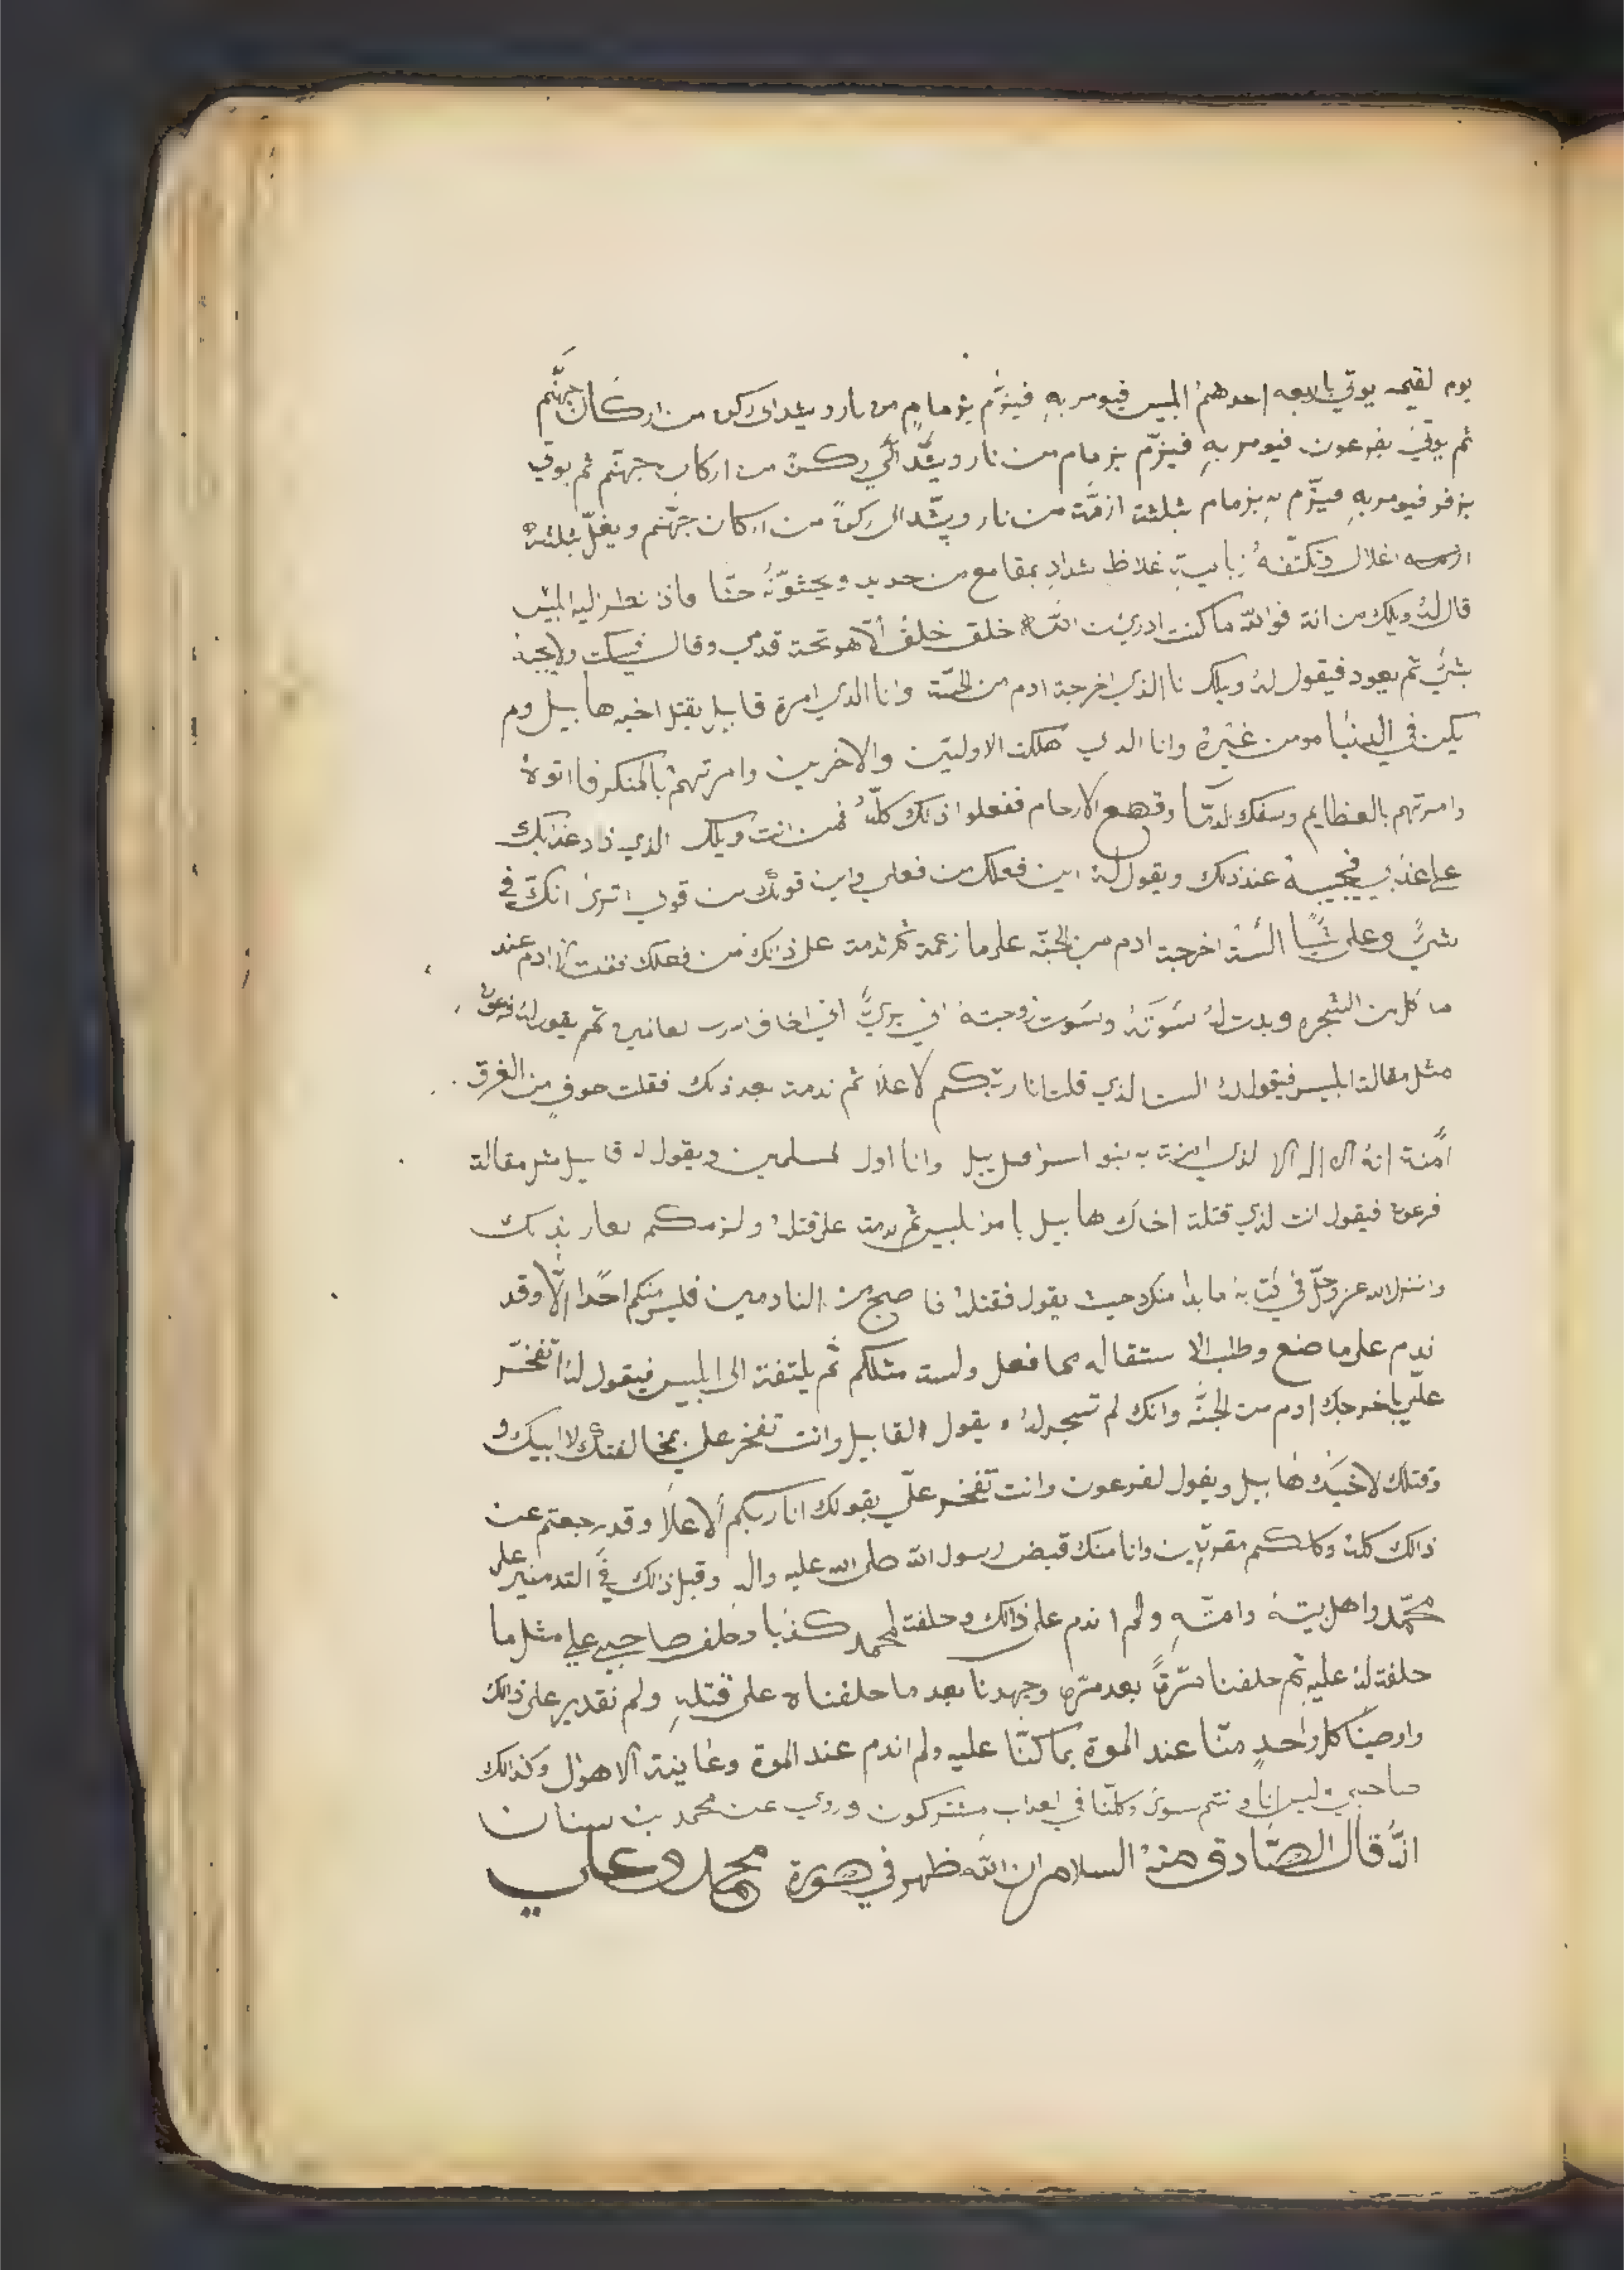 يوم لقيمه يوتي بالابعه احدهم ابليس فيومر بهِ فيزّم بزمامٍ من نار ويشد الى ركن من اركان جهنّم
ثم يوتي بفرعون فيومر بهِ فيزّم بزمام من نار ويشّد الي ركن من اركان جهنّم ثم يوتي
بزفر فيومر بهِ فيزّم به بزمام بثلثة ازمّة من نار ويشّد الى ركن من اركان جهّنم ويغلّ بثلثة
اغلال وتكتّفهُ زبانية غلاظ شداد بمقامع من حديد ويجثوّنهُ حثّا فاذ نظر اليه ابليس
قال لهُ ويلك من انة فوالله ما كنت ادري ان الله خلق خلقُ الا هو تحة قدمي وقال فيسكت ولا يجبهُ
بشيٍّ ثم يعود فيقول لهُ ويلك نا الذي اخرجة ادم من الجنّة وانا الذي امرة قابيل بقتل اخيه هابيل ولم
يكن في الدنيا مومن غيرهُ وانا الدي هلكت الاوليّن والاخرين وامرتهم بالمنكر فااتوهُ
وامرتهم بالعظايم وسفك لدمّا وقطع الارحام ففعلوا ذلك كلّهُ فمن انت ويلك الذي زاد عذابك
على عذابي فيجيبهُ عند ذلك ويقول لهُ اين فعلك من فعلي واين قولك من قولي اترى انكّ في
شيٍّ وعلى شيًا السّة اخرجة ادم من الجنّه على ما زعمة ثم ندمة على ذالك من فعلك فقلت ادم عند
ما كل من الشجره وبدت لهُ سَوتَهُ وسَوت زوجتهُ اني بريٌّ اني اخاف الله رب لعالمين ثم يقول لهُ فرعون
مثل مقالة ابليس فيقول لهُ الست الذي قلت انا ربّكم لاعلَا ثم ندمة بعد ذلك فقلت خوفٍ من الغرق
اٰمنة انهُ لا اله الا لذي امنة به بنو اسرائيل وانا اول لمسلمين ويقول له قابيل مثل مقالة
فرعون فيقول انت لذي قتلة اخاك هابيل بامر ابليس ثم ندمة على قتلهُ ولزمكم لعار بذلك
وانزل الله عز وجلّ في كتابهُ ما بدا منك حيث يقول فقتلهُ فاصبح من النادمين فليس منكم احًدا الّا وقد
ندم على ما صنع وطلب الا ستقاله بما فعل ولسة مثلكم ثم يلتفة الى ابليس فيقول لهُ اتفخّر
عليّ باخرجك ادم من الجنّه وانك لم تسجد لهُ ويقول القابيل وانت تفخر علي بمخالفتك لابيك و
وقتلك لاخيك هابيل ويقول لفرعون وانت تفخر عليّ بقولك انا ربكم الاعلَا وقد رجعتم عن
ذالك كلهُ وكلكم مقريّن وانا منك قبض رسول الله صلى الله عليه واله وقبل ذالك في التدمير على
محمّد واهل بيتهُ وامتّهِ ولم اندم على ذالك وحلفة لمحمد كذبا وحلف صاحبي على مثل ما
حلفة لهُ عليه ثم حلفنا مرّةً بعد مرّه وجهدنا بعد ما حلفناه على قتلهِ ولم نقدير على ذالك
واوصيّنا كل واحدٍ منّا عند الموة بما كنّا عليه ولم اندم عند الموة وعاينة الاهوال وكذالك
صاحبي وليس انا وانتم سوى وكلنّا في لعداب مشتركون وروي عن محمد بن سنان
انّهُ قال الصّادق منهُ السلام ان الله ظهر في صورة محمد وعلي